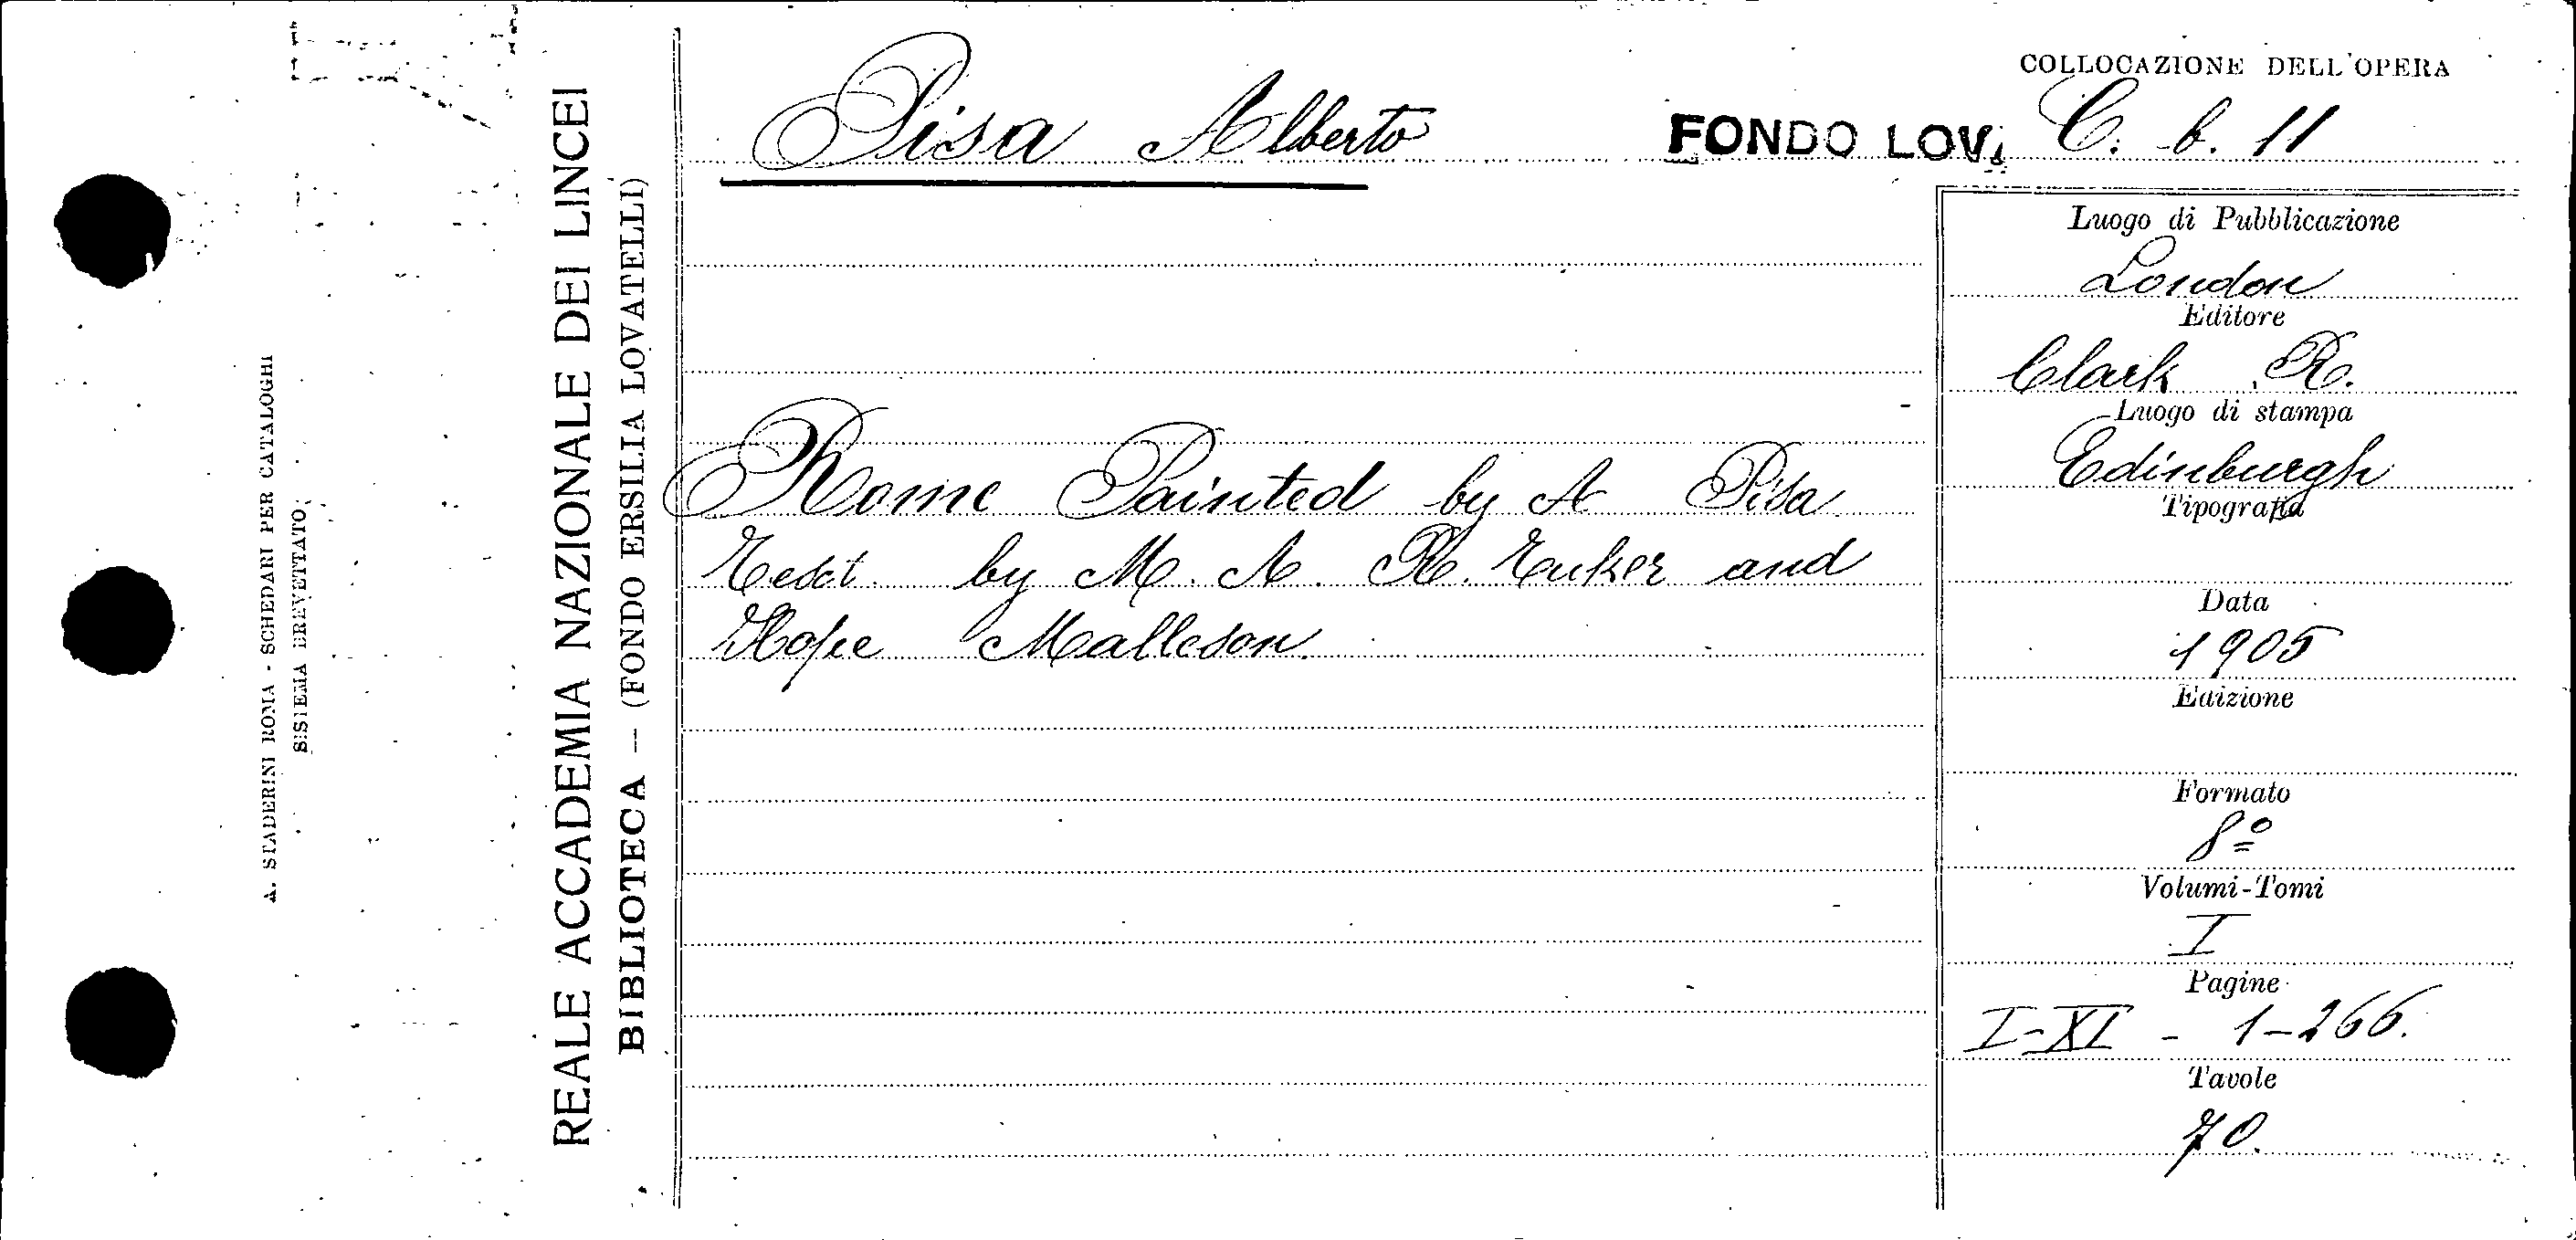 COLLOCAZIONE DELL'OPERA
Pisa Alberto
FONDO LOV. C. b. 11
Rome Painted by A Pisa
Text by M. A. R. Tuker and
Hope Malleson
Luogo di Pubblicazione
London
Editore
Clark R.
Luogo di stampa
Edinburgh
Tipografia
Data
1905
Edizione
Formato
8º
Volumi-Tomi
I
Pagine
I-XI - 1-266.
Tavole
70.
REALE ACCADEMIA NAZIONALE DEI LINCEI
BIBLIOTECA — (FONDO ERSILIA LOVATELLI)
A. STADERINI ROMA - SCHEDARI PER CATALOGHI
SISTEMA BREVETTATO